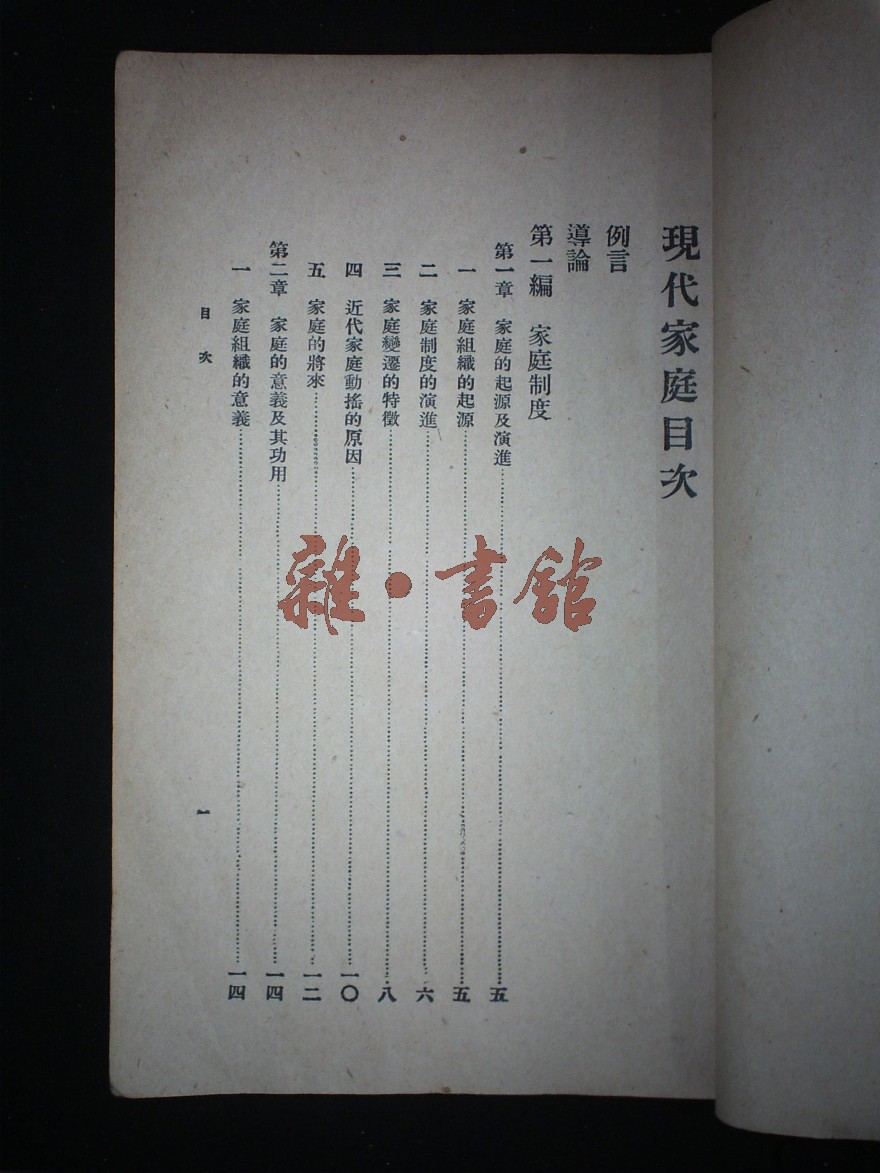 現代家庭目次
例言
導論
第一編 家庭制度
第一章 家庭的起源及演進……五
一 家庭組織的起源……五
二 家庭制度的演進……六
三 家庭變遷的特徵……八
四 近代家庭動搖的原因……一〇
五 家庭的將來……一二
第二章 家庭的意義及其功用……一四
一 家庭組織的意義……一四
目次 一
雜·書館